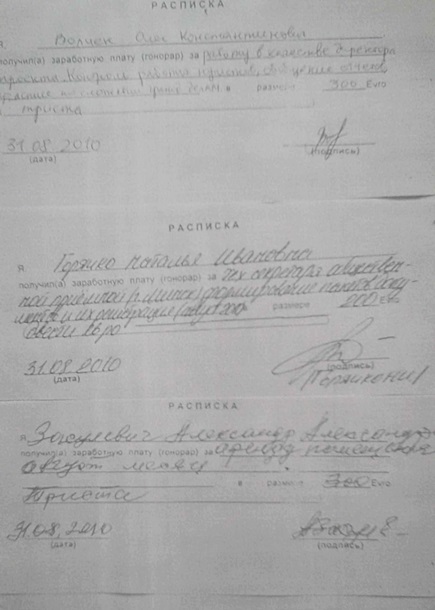 РАСПИСКА
Я Волчек Олег Константинович
получил(а) заработную плату (гонорар) за работу в качестве директора
проекта, контроль работы юристов, обобщение отчетов,
участие по сложным делам в размере 300 Euro
триста
31.08.2010
(дата) (подпись)
РАСПИСКА
Я Горячко Наталья Ивановна
получил(а) заработную плату (гонорар) за тех. секретаря обществен-
ной приемной (г. Минск) формирование пакетов доку-
ментов и их регистрация (август 2010) в размере 200 Euro
двести евро
31.08.2010
(дата) (подпись)
РАСПИСКА
Я Александр Александр
получил(а) заработную плату (гонорар) за аренду помещения
август месяц
в размере 300 Euro
Триста
31.08.2010
(дата) (подпись)